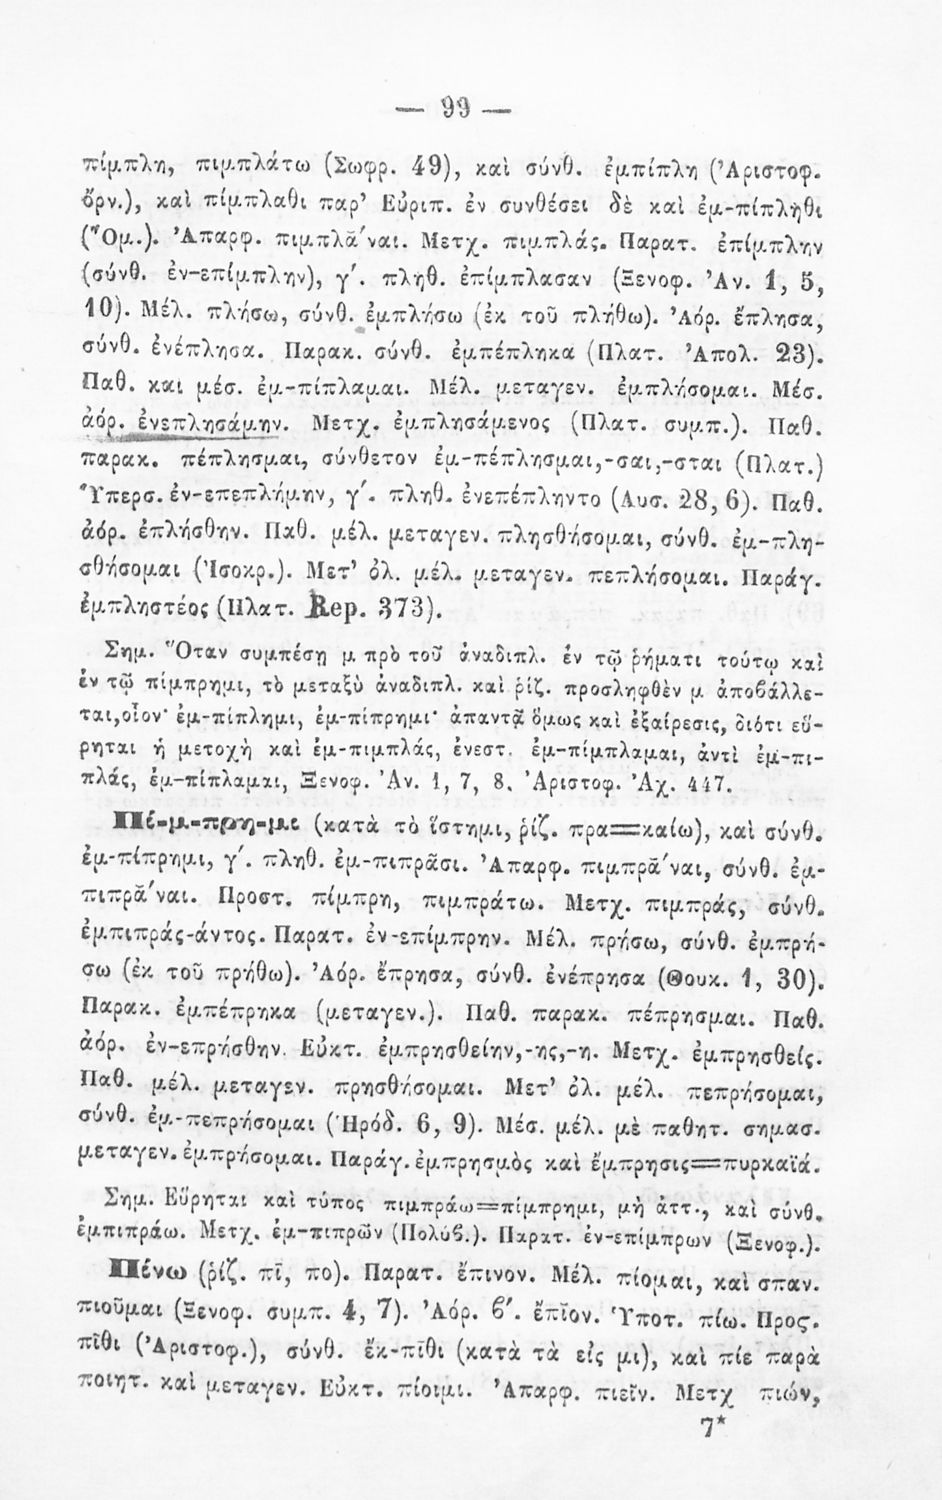 — 99 —
πίμπλη, πιμπλάτω (Σωφρ. 49), καὶ σύνθ. ἐμπίπλη (Ἀριστοφ.
ὄρν.), καὶ πίμπλαθι παρ’ Εὐριπ. ἐν συνθέσει δὲ καὶ ἐμ-πίπληθι
(Ὅμ.). Ἀπαρφ. πιμπλᾰ́ναι. Μετχ. πιμπλάς. Παρατ. ἐπίμπλην
(σύνθ. ἐν-επίμπλην), γ΄. πληθ. ἐπίμπλασαν (Ξενοφ. Ἀν. 1, 5,
10). Μέλ. πλήσω, σύνθ. ἐμπλήσω (ἐκ τοῦ πλήθω). Ἀόρ. ἔπλησα,
σύνθ. ἐνέπλησα. Παρακ. σύνθ. ἐμπέπληκα (Πλατ. Ἀπολ. 23).
Παθ. και μέσ. ἐμ-πίπλαμαι. Μέλ. μεταγεν. ἐμπλήσομαι. Μέσ.
ἀόρ. ἐνεπλησάμην. Μετχ. ἐμπλησάμενος (Πλατ. συμπ.). Παθ.
παρακ. πέπλησμαι, σύνθετον ἐμ-πέπλησμαι,-σαι,-σται (Πλατ.)
Ὑπερσ. ἐν-επεπλήμην, γ΄. πληθ. ἐνεπέπληντο (Λυσ. 28, 6). Παθ.
ἀόρ. ἐπλήσθην. Παθ. μέλ. μεταγεν. πλησθήσομαι, σύνθ. ἐμ-πλη-
σθήσομαι (Ἰσοκρ.). Μετ’ ὀλ. μέλ. μεταγεν. πεπλήσομαι. Παράγ.
ἐμπληστέος (Πλατ. Rep. 373).
Σημ. Ὅταν συμπέσῃ μ πρὸ τοῦ ἀναδιπλ. ἐν τῷ ῥήματι τούτῳ καὶ
ἐν τῷ πίμπρημι, τὸ μεταξὺ ἀναδιπλ. καὶ ῥίζ. προσληφθὲν μ ἀποβάλλε-
ται,οἷον· ἐμ-πίπλημι, ἐμ-πίπρημι· ἀπαντᾷ ὅμως καὶ ἐξαίρεσις, διότι εὕ-
ρηται ἡ μετοχὴ καὶ ἐμ-πιμπλάς, ἐνεστ. ἐμ-πίμπλαμαι, ἀντὶ ἐμ-πι-
πλάς, ἐμ-πίπλαμαι, Ξενοφ. Ἀν. 1, 7, 8. Ἀριστοφ. Ἀχ. 447.
Πί-μ-πρη-μι (κατὰ τὸ ἵστημι, ῥίζ. πρα=καίω), καὶ σύνθ.
ἐμ-πίπρημι, γ΄. πληθ. ἐμ-πιπρᾶσι. Ἀπαρφ. πιμπρᾰ́ναι, σύνθ. ἐμ-
πιπρᾰ́ναι. Προστ. πίμπρη, πιμπράτω. Μετχ. πιμπράς, σύνθ.
ἐμπιπράς-άντος. Παρατ. ἐν-επίμπρην. Μέλ. πρήσω, σύνθ. ἐμπρή-
σω (ἐκ τοῦ πρήθω). Ἀόρ. ἔπρησα, σύνθ. ἐνέπρησα (Θουκ. 1, 30).
Παρακ. ἐμπέπρηκα (μεταγεν.). Παθ. παρακ. πέπρησμαι. Παθ.
ἀόρ. ἐν-επρήσθην. Εὐκτ. ἐμπρησθείην,-ης,-η. Μετχ. ἐμπρησθείς.
Παθ. μέλ. μεταγεν. πρησθήσομαι. Μετ’ ὀλ. μέλ. πεπρήσομαι,
σύνθ. ἐμ-πεπρήσομαι (Ἡρόδ. 6, 9). Μέσ. μέλ. μὲ παθητ. σημασ.
μεταγεν. ἐμπρήσομαι. Παράγ. ἐμπρησμὸς καὶ ἔμπρησις=πυρκαϊά.
Σημ. Εὕρηται καὶ τύπος πιμπράω=πίμπρημι, μὴ ἀττ., καὶ σύνθ.
ἐμπιπράω. Μετχ. ἐμ-πιπρῶν (Πολύβ.). Παρατ. ἐν-επίμπρων (Ξενοφ.).
Πίνω (ῥίζ. πῐ, πο). Παρατ. ἔπινον. Μέλ. πίομαι, καὶ σπαν.
πιοῦμαι (Ξενοφ. συμπ. 4, 7). Ἀόρ. β΄. ἔπῐον. Ὑποτ. πίω. Προς.
πῖθι (Ἀριστοφ.), σύνθ. ἔκ-πῖθι (κατὰ τὰ εἰς μι), καὶ πίε παρὰ
ποιητ. καὶ μεταγεν. Εὐκτ. πίοιμι. Ἀπαρφ. πιεῖν. Μετχ πιών,
7*